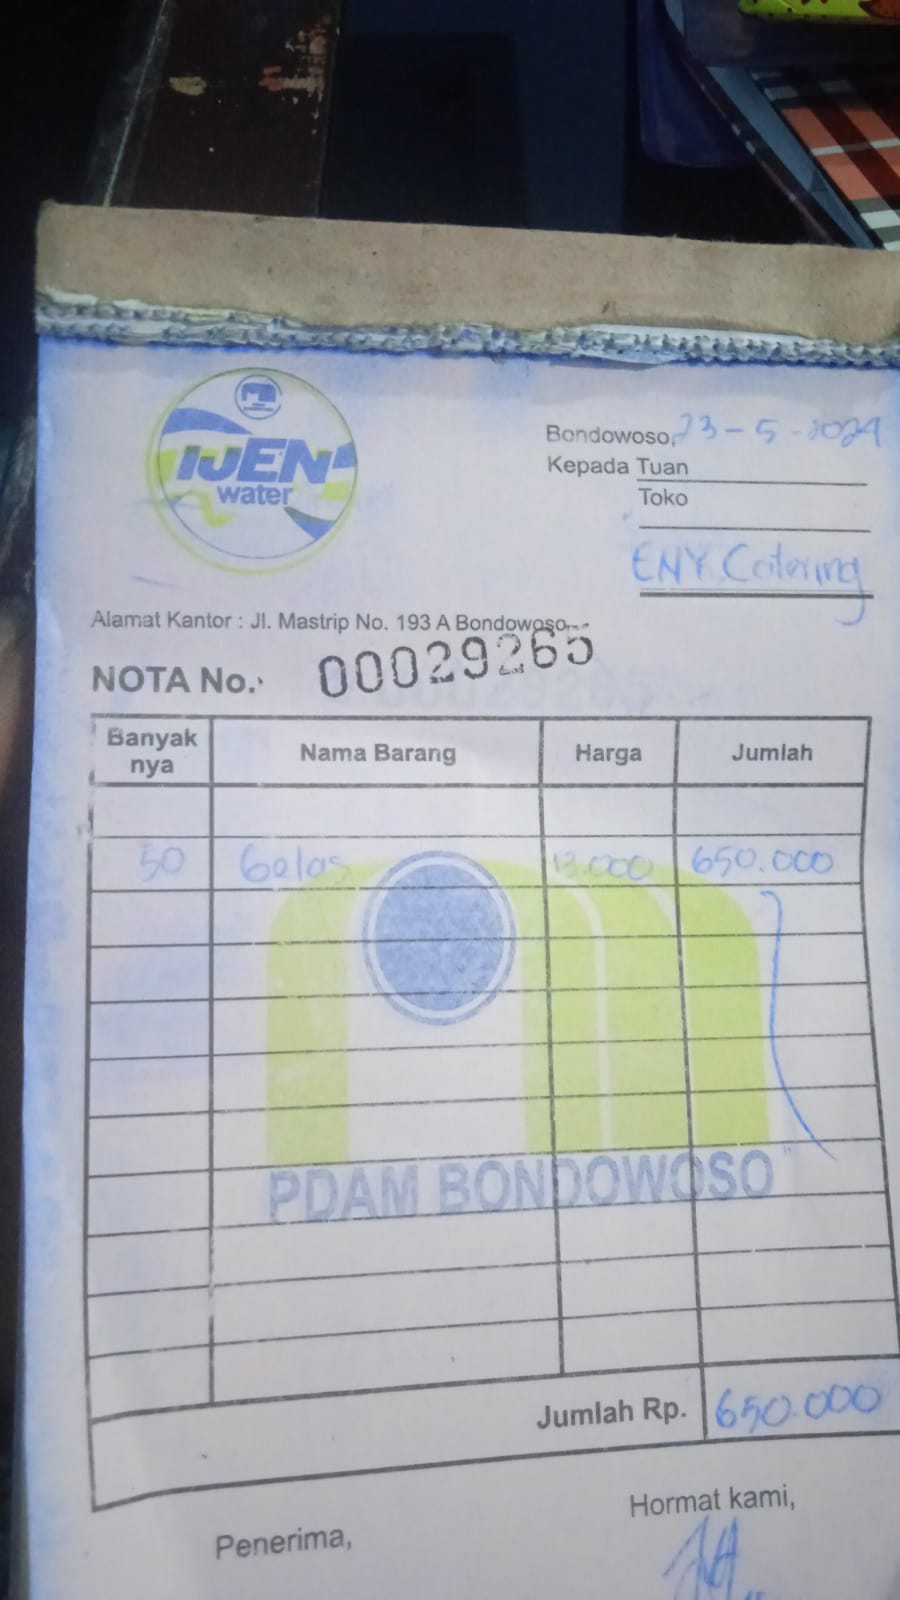 IJEN
water
Bondowoso, 23-5-2024
Kepada Tuan
Toko
ENY Catering
Alamat Kantor : Jl. Mastrip No. 193 A Bondowoso
NOTA No. 00029265
Banyak nya Nama Barang Harga Jumlah
50 Gelas 13.000 650.000
PDAM BONDOWOSO
Jumlah Rp. 650.000
Hormat kami,
Penerima,